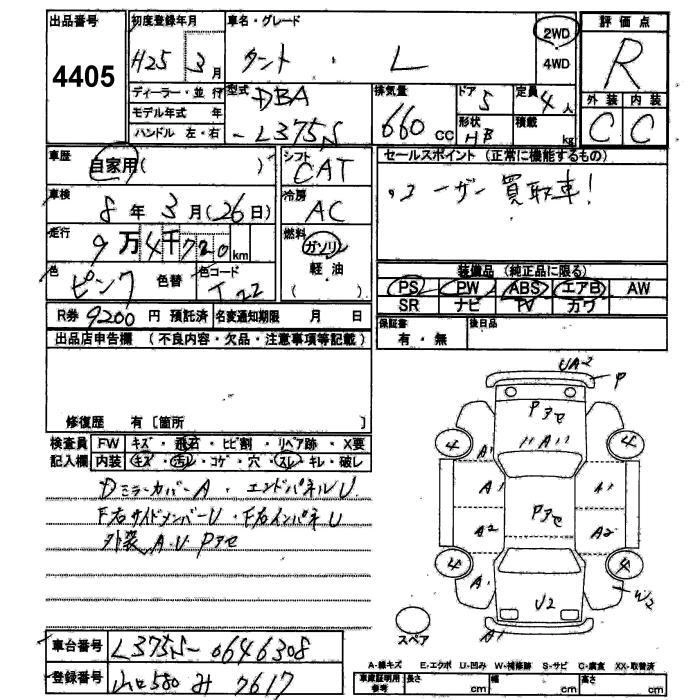 出品番号
4405
初度登録年月
H25 3月
車名・グレード
タント ・ L
2WD
4WD
評価点
R
外装 内装
C C
ディーラー・並行
モデル年式 年
ハンドル 左・右
型式
DBA
-L375S
排気量
660 cc
ドア
5
形状
HB
定員
4人
積載
kg
車歴
自家用( )
シフト
CAT
セールスポイント (正常に機能するもの)
ユーザー買取車!
車検
8年3月(26日)
冷房
AC
走行
9万4千720km
燃料
ガソリン
軽油
( )
色
ピンク
色替
色コード
T22
装備品 (純正品に限る)
PS PW ABS エアB AW
SR ナビ TV カワ
R券 9200円 預託済 名変通知期限 月 日
保証書
有・無
後日品
出品店申告欄 (不良内容・欠品・注意事項等記載)
修復歴 有 [箇所 ]
検査員
記入欄
FW キズ・飛石・ヒビ割・リペア跡・X要
内装 キズ・汚レ・コゲ・穴・スレ・キレ・破レ
DミラーカバーA・エンドパネルU
F右サイドメンバーU・F右インパネU
外装 A・U Pアセ
UA-2 P
Pアセ
4 A1 A1 4
A1 A1
Pアセ
A2 A2
4 A 4
U2 W2
A1
スペア
車台番号
L375S-0646308
登録番号
山口580 み 7617
A-線キズ E-エクボ U-凹み W-補修跡 S-サビ C-腐食 XX-取替済
車庫証明用
参考
長さ cm 幅 cm 高さ cm